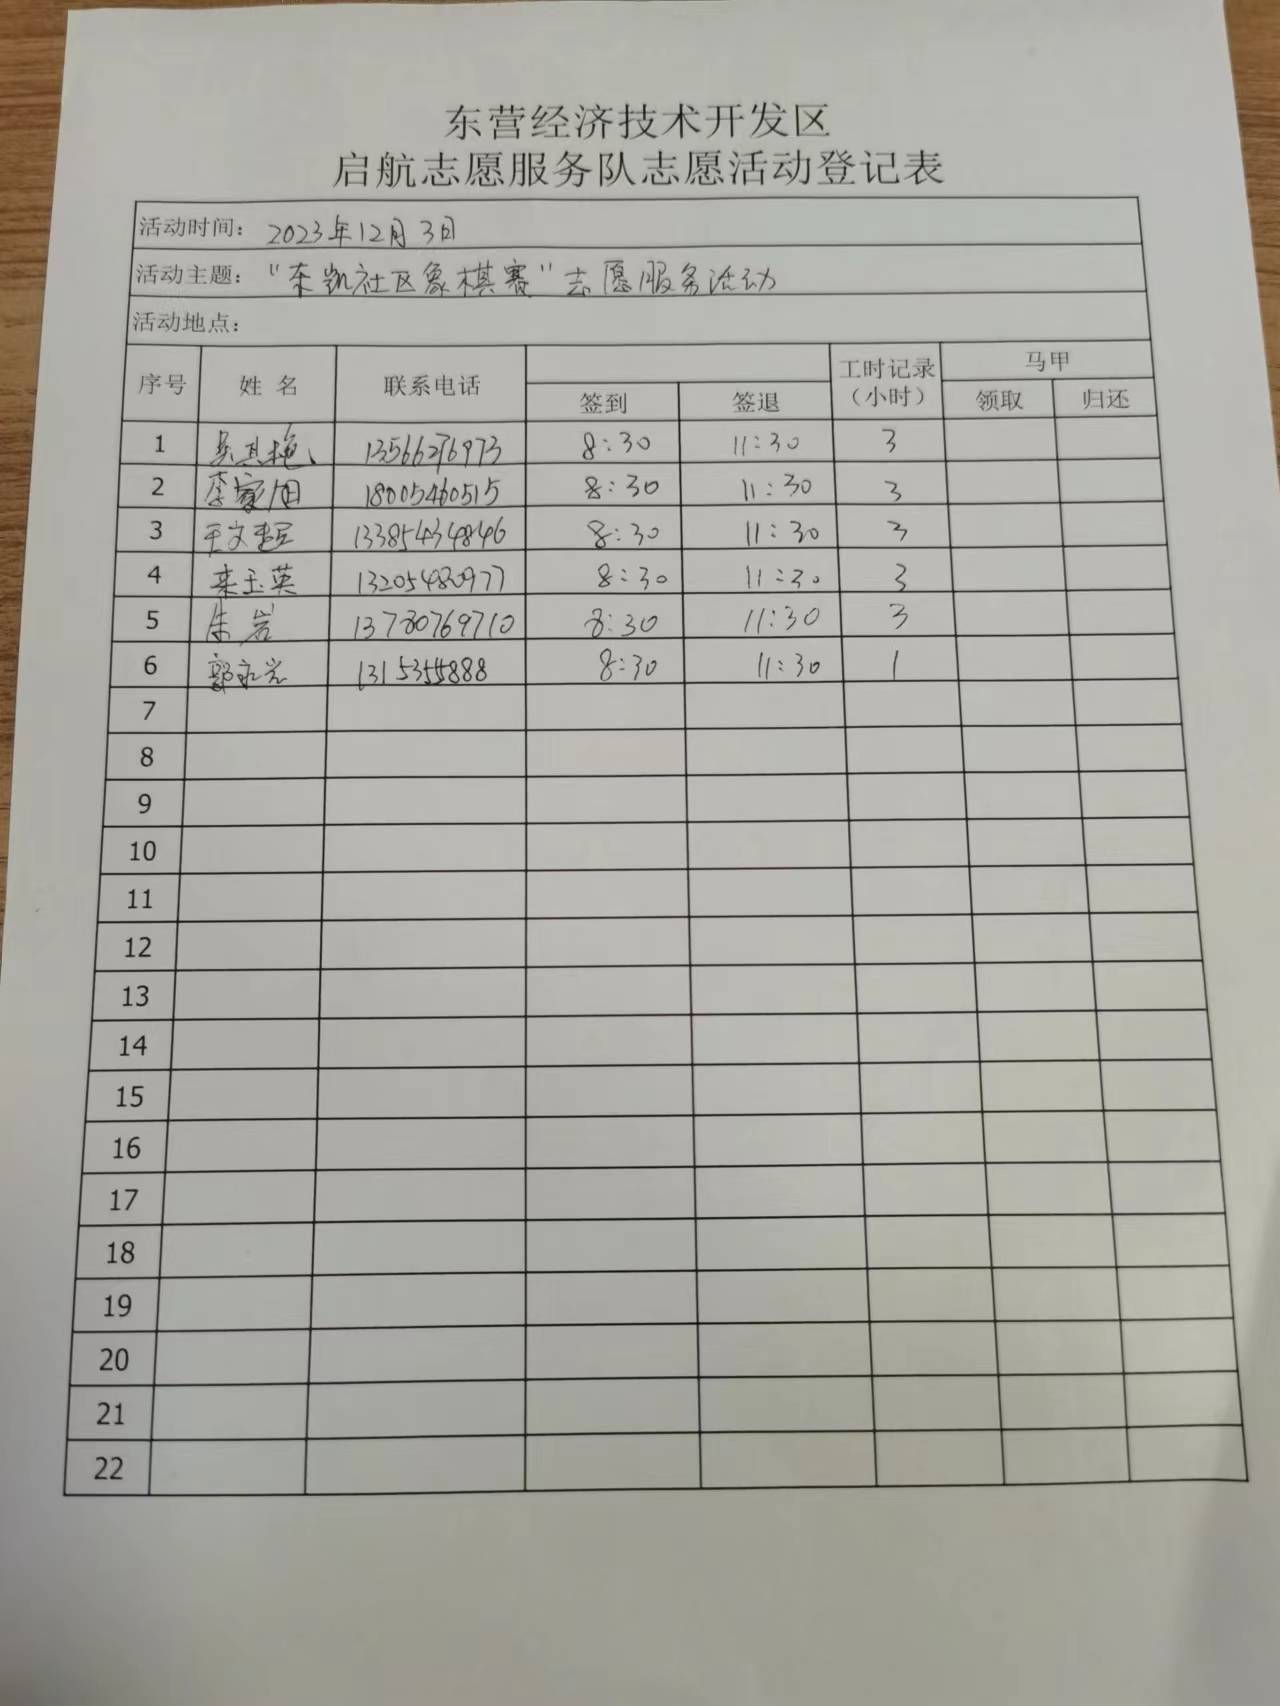 东营经济技术开发区
启航志愿服务队志愿活动登记表
活动时间： 2023年12月3日
活动主题： "东凯社区象棋赛"志愿服务活动
活动地点：
序号 姓名 联系电话 签到 签退 工时记录（小时） 马甲 领取 归还
1 13566276973 8:30 11:30 3
2 李家用 18005460515 8:30 11:30 3
3 王文 13385434846 8:30 11:30 3
4 来玉英 13205480977 8:30 11:30 3
5 朱岩 13780769710 8:30 11:30 3
6 郭永岩 1315355888 8:30 11:30 1
7
8
9
10
11
12
13
14
15
16
17
18
19
20
21
22